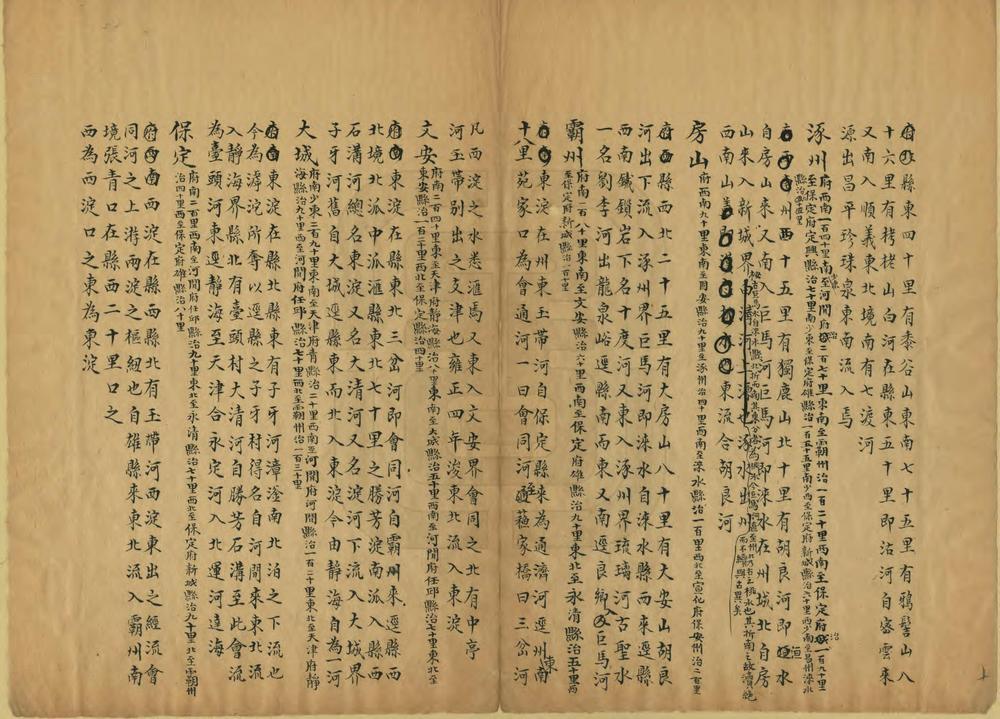 縣東四十里有黍谷山東南七十五里有鴉髻山八
十六里有栲栳山白河在縣東五十里即沽河自密雲來
又南入順義東北境南有七渡河
源出昌平珍珠泉東南流入焉
涿州
府西南一百四十里南至河間府
東南至霸州治一百二十里西南至保定府
一百九十里
至保定府定興縣治七十里南少東至保定府雄縣治一百五十五里南少西至保定府新城縣治六十里西少南至易州淶水縣治
州西十五里有獨鹿山北十里有胡良河即
水
自房山來又南入巨馬河巨馬河即淶水在州城北自房
山來入新城界
西南
東流合胡良河
房山
府西南九十里東南至固安縣治九十里至涿州治四十里西南至淶水縣治一百里西北至宣化府保安州治二百里
縣西北二十五里有大房山八十里有大安山胡良
河出下流入涿州界巨馬河即淶水自淶水縣西來逕縣
西南鐵鎖岩下名十度河又東入涿州界琉璃河古聖水
一名劉李河出龍泉峪逕縣南而東又南逕良鄉入巨馬河
霸州
府南二百八十里東南至文安縣治六十里西南至保定府雄縣治九十里東北至永清縣治五十里西
至保定府新城縣治一百里
東淀在州東玉帶河自保定縣來為通濟河逕州南
十八里苑家口為會通河一曰會同河
蘓家橋曰三岔河
凡西淀之水悉滙焉又東入文安界會同之北有中亭
河玉帶別出之支津也雍正四年浚東北流入東淀
文安
府南二百四十里東至天津府靜海縣治八十里東南至大城縣治五十里西南至河間府任邱縣治七十里東北至
東安縣治一百二十里西北至保定縣治四十里
東淀在縣東北三岔河即會同河自霸州來逕縣西
北境北派中派滙縣東北七十里之勝芳淀南派入縣西
石溝河總名東淀又名大清河又名淀河下流入大城界
子牙河舊自大城逕縣東而北入東淀今由靜海自為一河
大城
府南少東二百九十里東南至天津府青縣治二十里西南至河間府河間縣治一百二十里東北至天津府靜
海縣治九十里西至河間府任邱縣治七十里西北至霸州治一百三十里
東淀在縣東北有子牙河漳滏南北泊之下流也
今為滹沱所奪以逕縣之子牙村得名自河間來東北流
入靜海界縣北有臺頭村大清河自勝芳石溝至此會流
為臺頭河東逕靜海至天津合永定河入北運河達海
保定
府南二百里西南至河間府任邱縣治九十里東北至永清縣治七十里西北至保定府新城縣治九十里北至霸州
治四十里西至保定府雄縣治八十里
西淀在縣西縣北有玉帶河西淀東出之經流會
同河之上游兩淀之樞紐也自雄縣來東北流入霸州南
境張青口在縣西二十里口之
西為西淀口之東為東淀